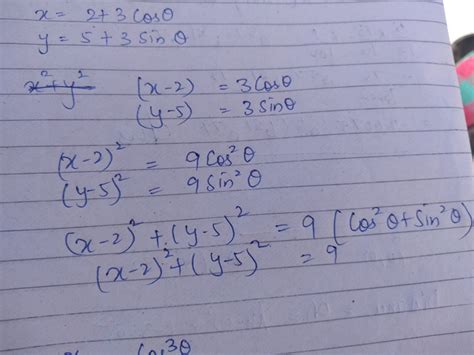 x = 2+3 Cosθ
y = 5+3 Sin θ
x²+y² (x-2) = 3Cosθ
(y-5) = 3Sinθ
(x-2)² = 9Cos²θ
(y-5)² = 9Sin²θ
(x-2)² + (y-5)² = 9 (Cos²θ+Sin²θ)
(x-2)²+(y-5)² = 9